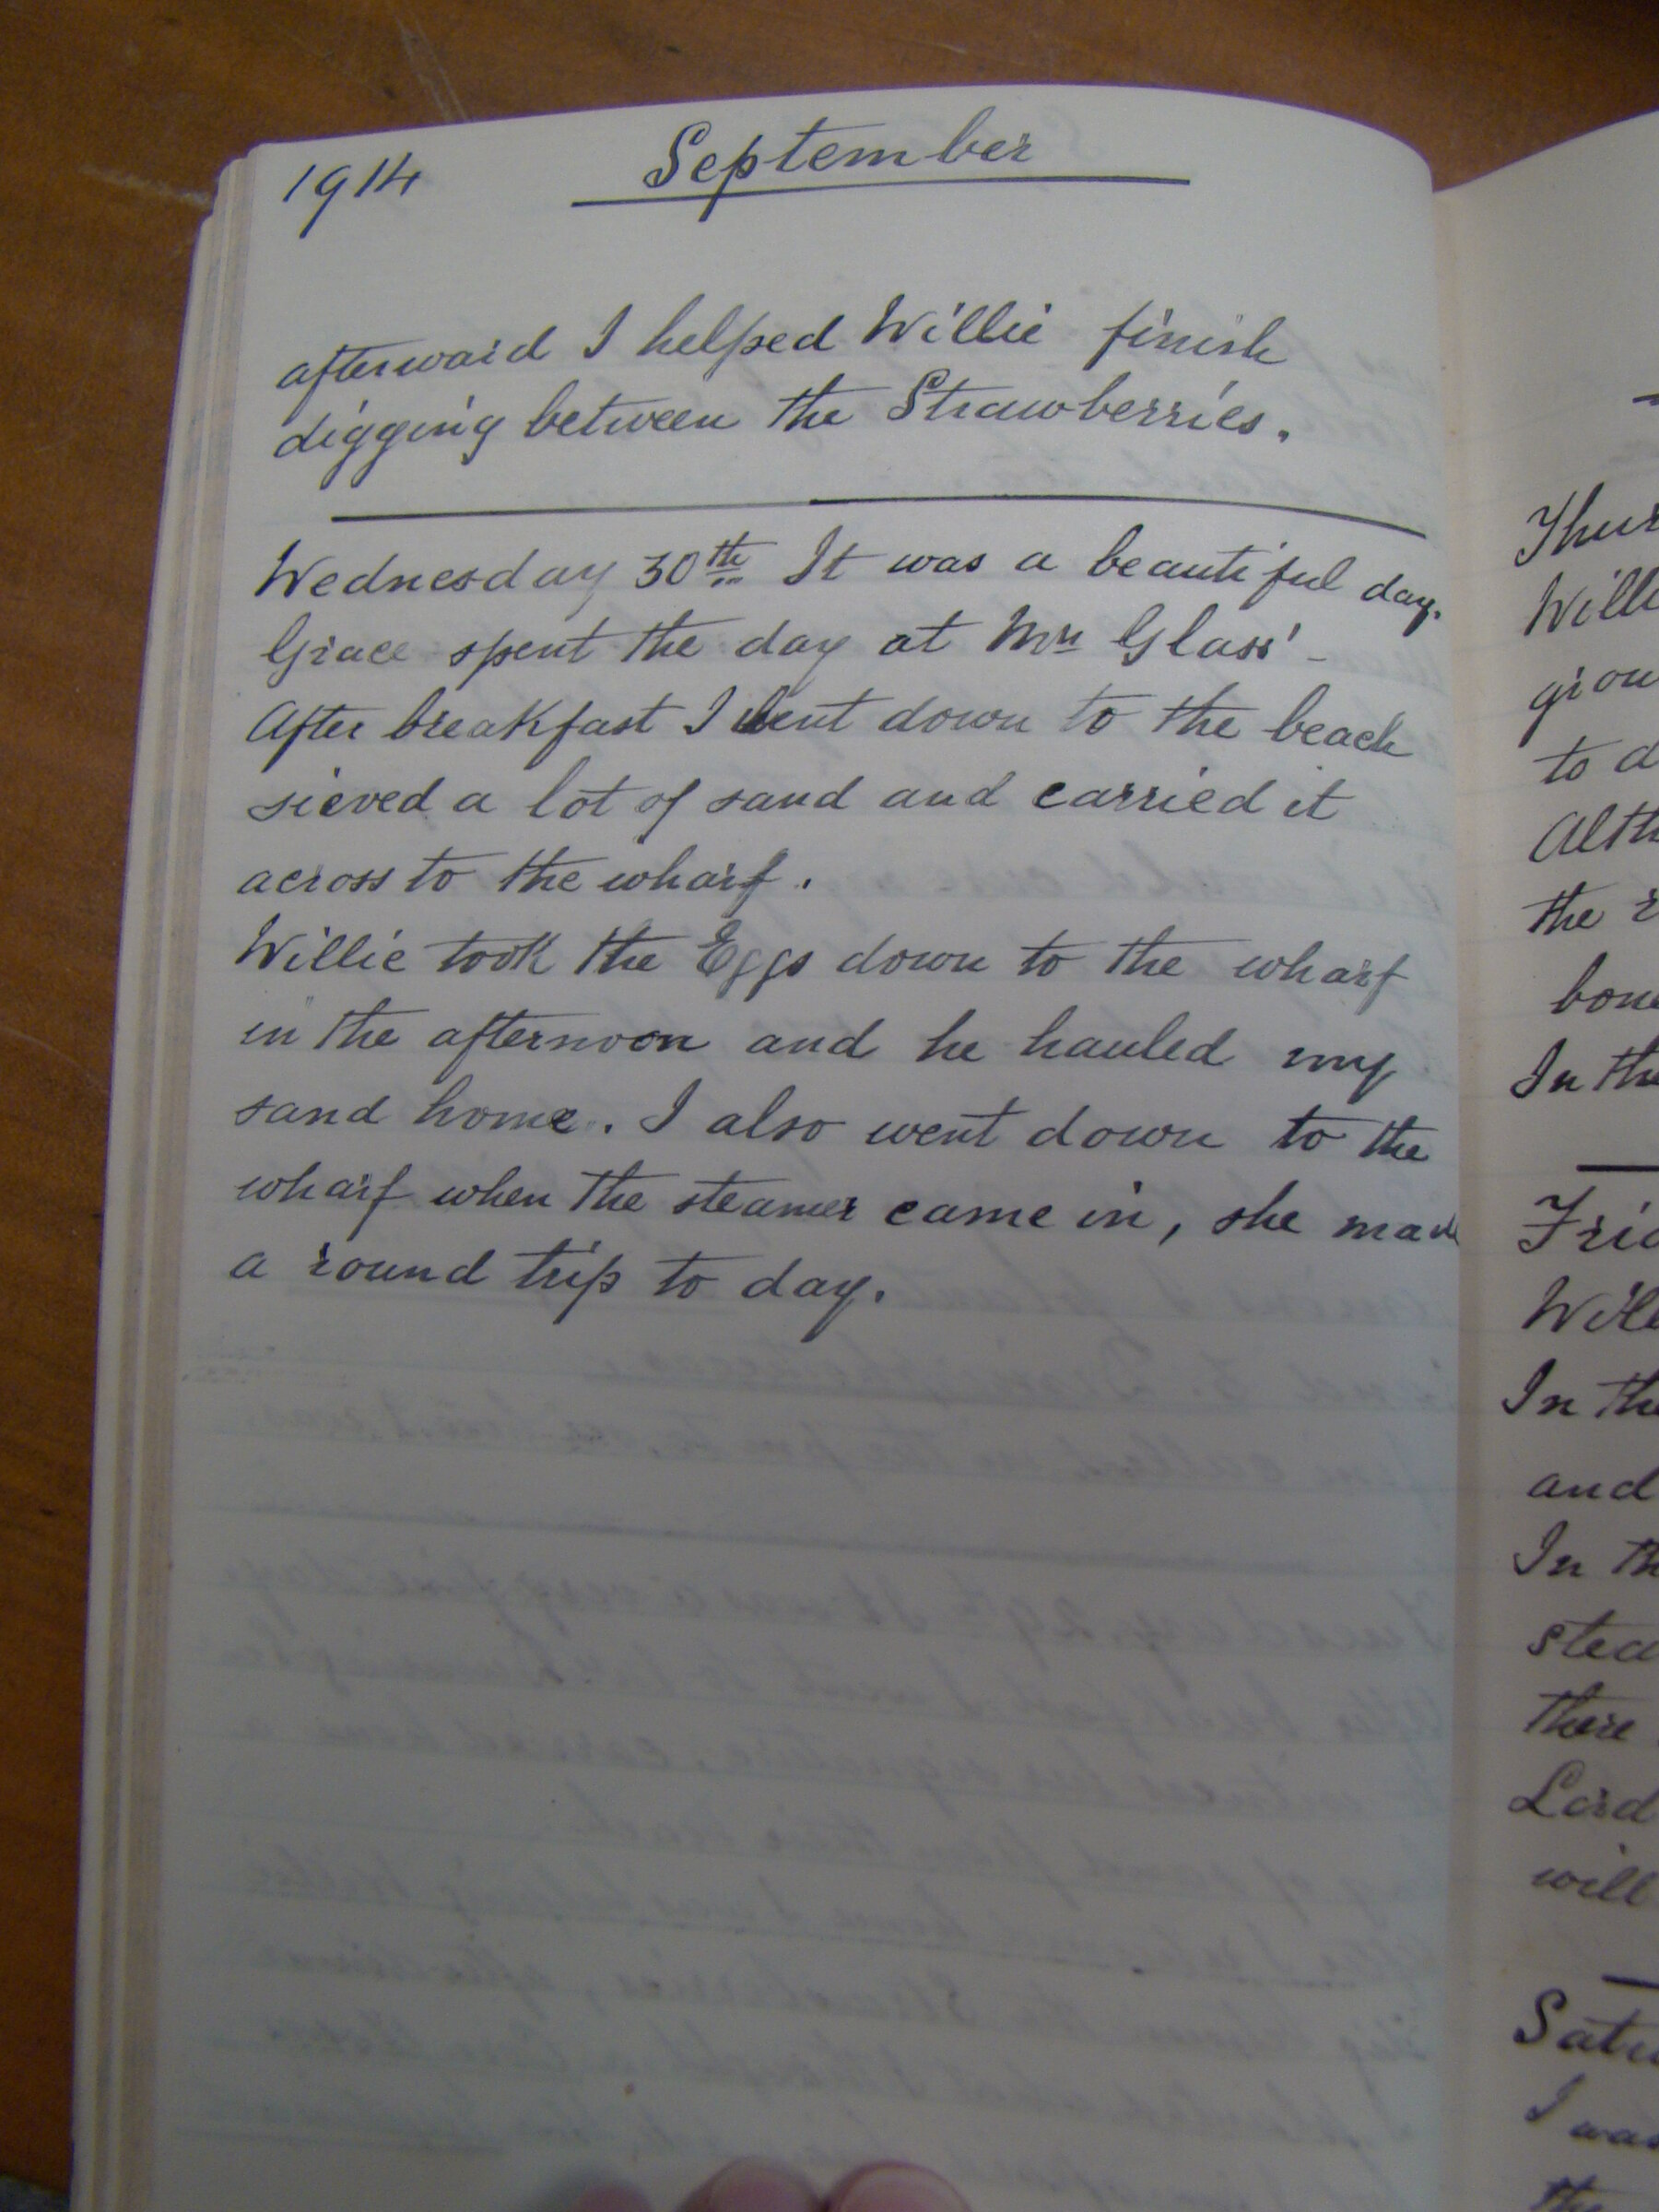 1914 September
afterward I helped Willie finish
digging between the Strawberries.
Wednesday 30th It was a beautiful day.
Grace spent the day at Mrs Glass' -
After breakfast I went down to the beach
sieved a lot of sand and carried it
across to the wharf.
Willie took the Eggs down to the wharf
in the afternoon and he hauled my
sand home. I also went down to the
wharf when the steamer came in, she made
a round trip to day.
Thur
Willi
grou
to d
Alth
the
bone
In the
Frid
Will
In the
and
In th
stea
there
Lord
will
Satu
I was